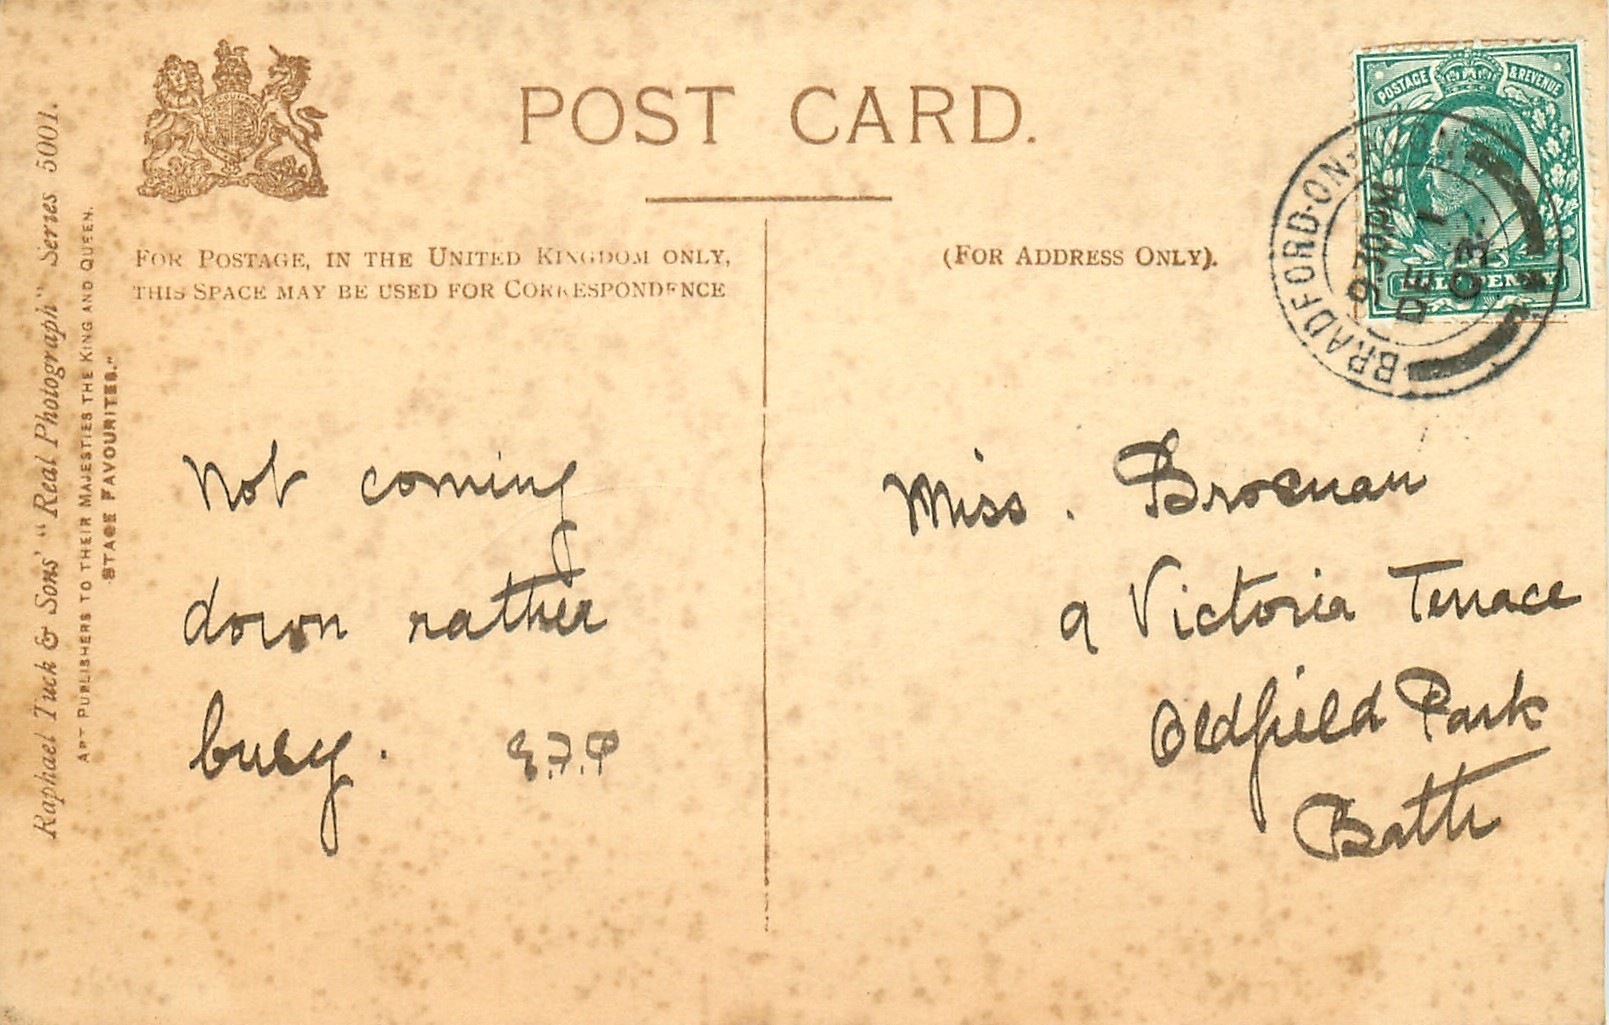 POST CARD.
FOR POSTAGE, IN THE UNITED KINGDOM ONLY,
THIS SPACE MAY BE USED FOR CORRESPONDENCE
(FOR ADDRESS ONLY).
Raphael Tuck & Sons' "Real Photograph" Series 5001.
ART PUBLISHERS TO THEIR MAJESTIES THE KING AND QUEEN.
"STAGE FAVOURITES."
POSTAGE & REVENUE
HALFPENNY
BRADFORD-ON-
9.30PM
DE 1
03
Not coming
down rather
busy.
Miss. Brosnan
9 Victoria Terrace
Oldfield Park
Bath